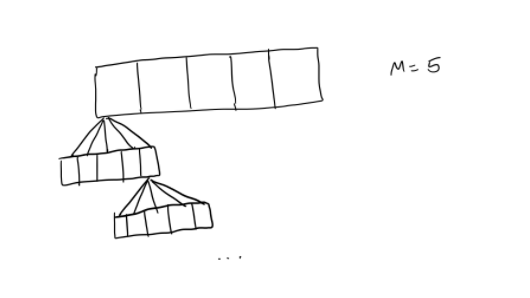 M = 5
...